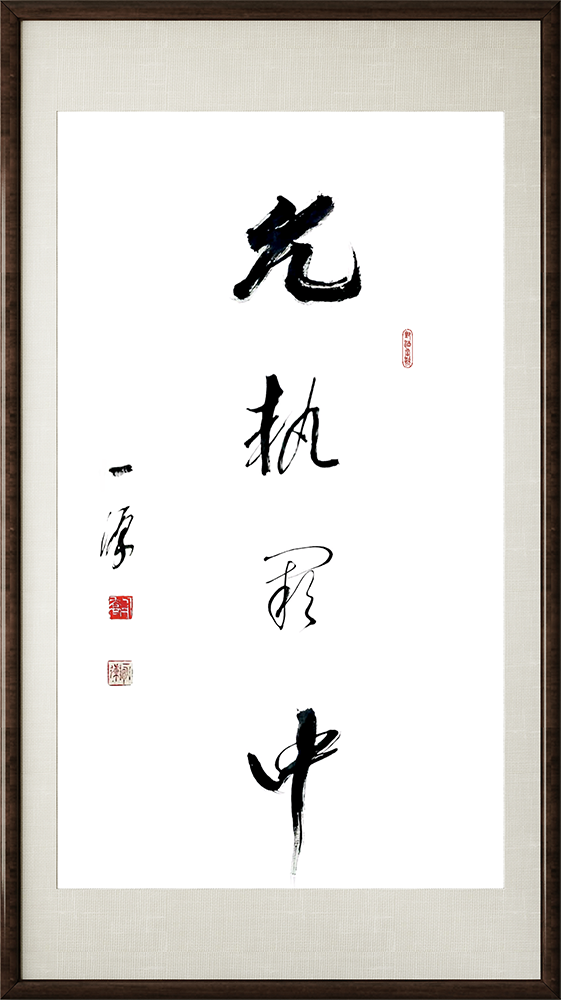 允执厥中
一源